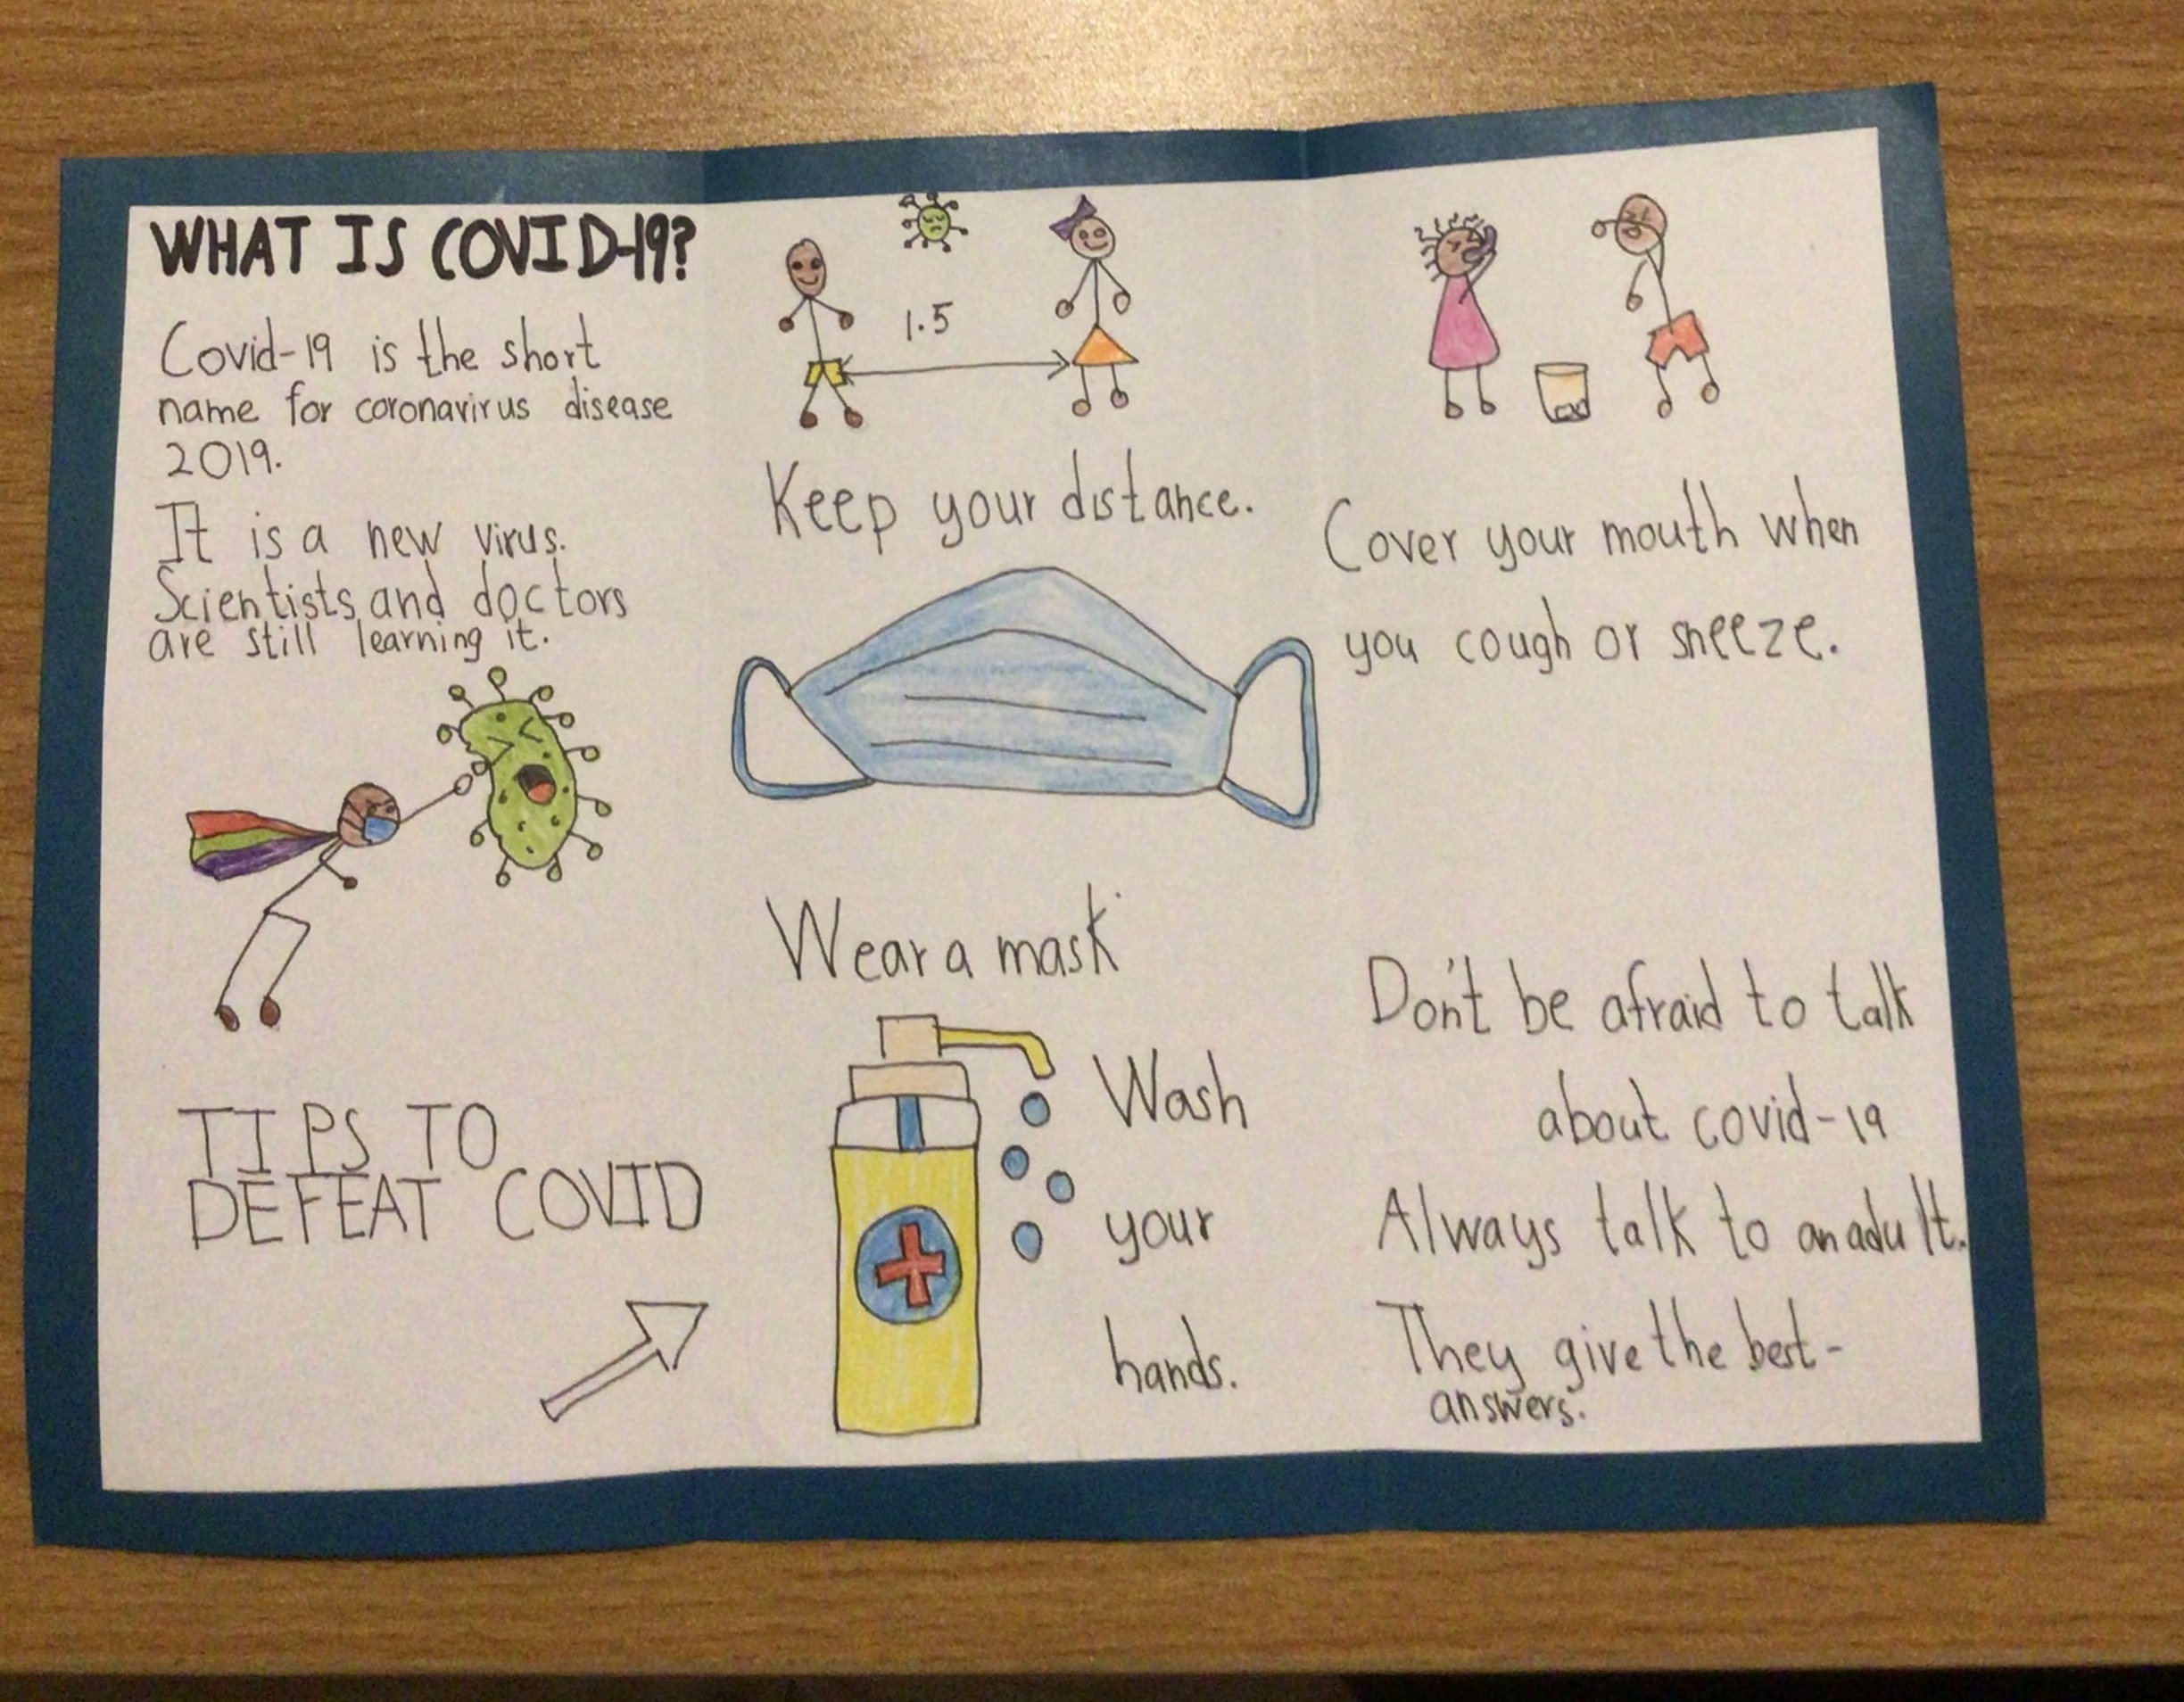 WHAT IS COVID-19?
Covid-19 is the short
name for coronavirus disease
2019.
It is a new virus.
Scientists and doctors
are still learning it.
TIPS TO
DEFEAT COVID
1.5
Keep your distance.
Wear a mask
Wash
your
hands.
Cover your mouth when
you cough or sneeze.
Don't be afraid to talk
about covid-19
Always talk to an adult.
They give the best-
answers.